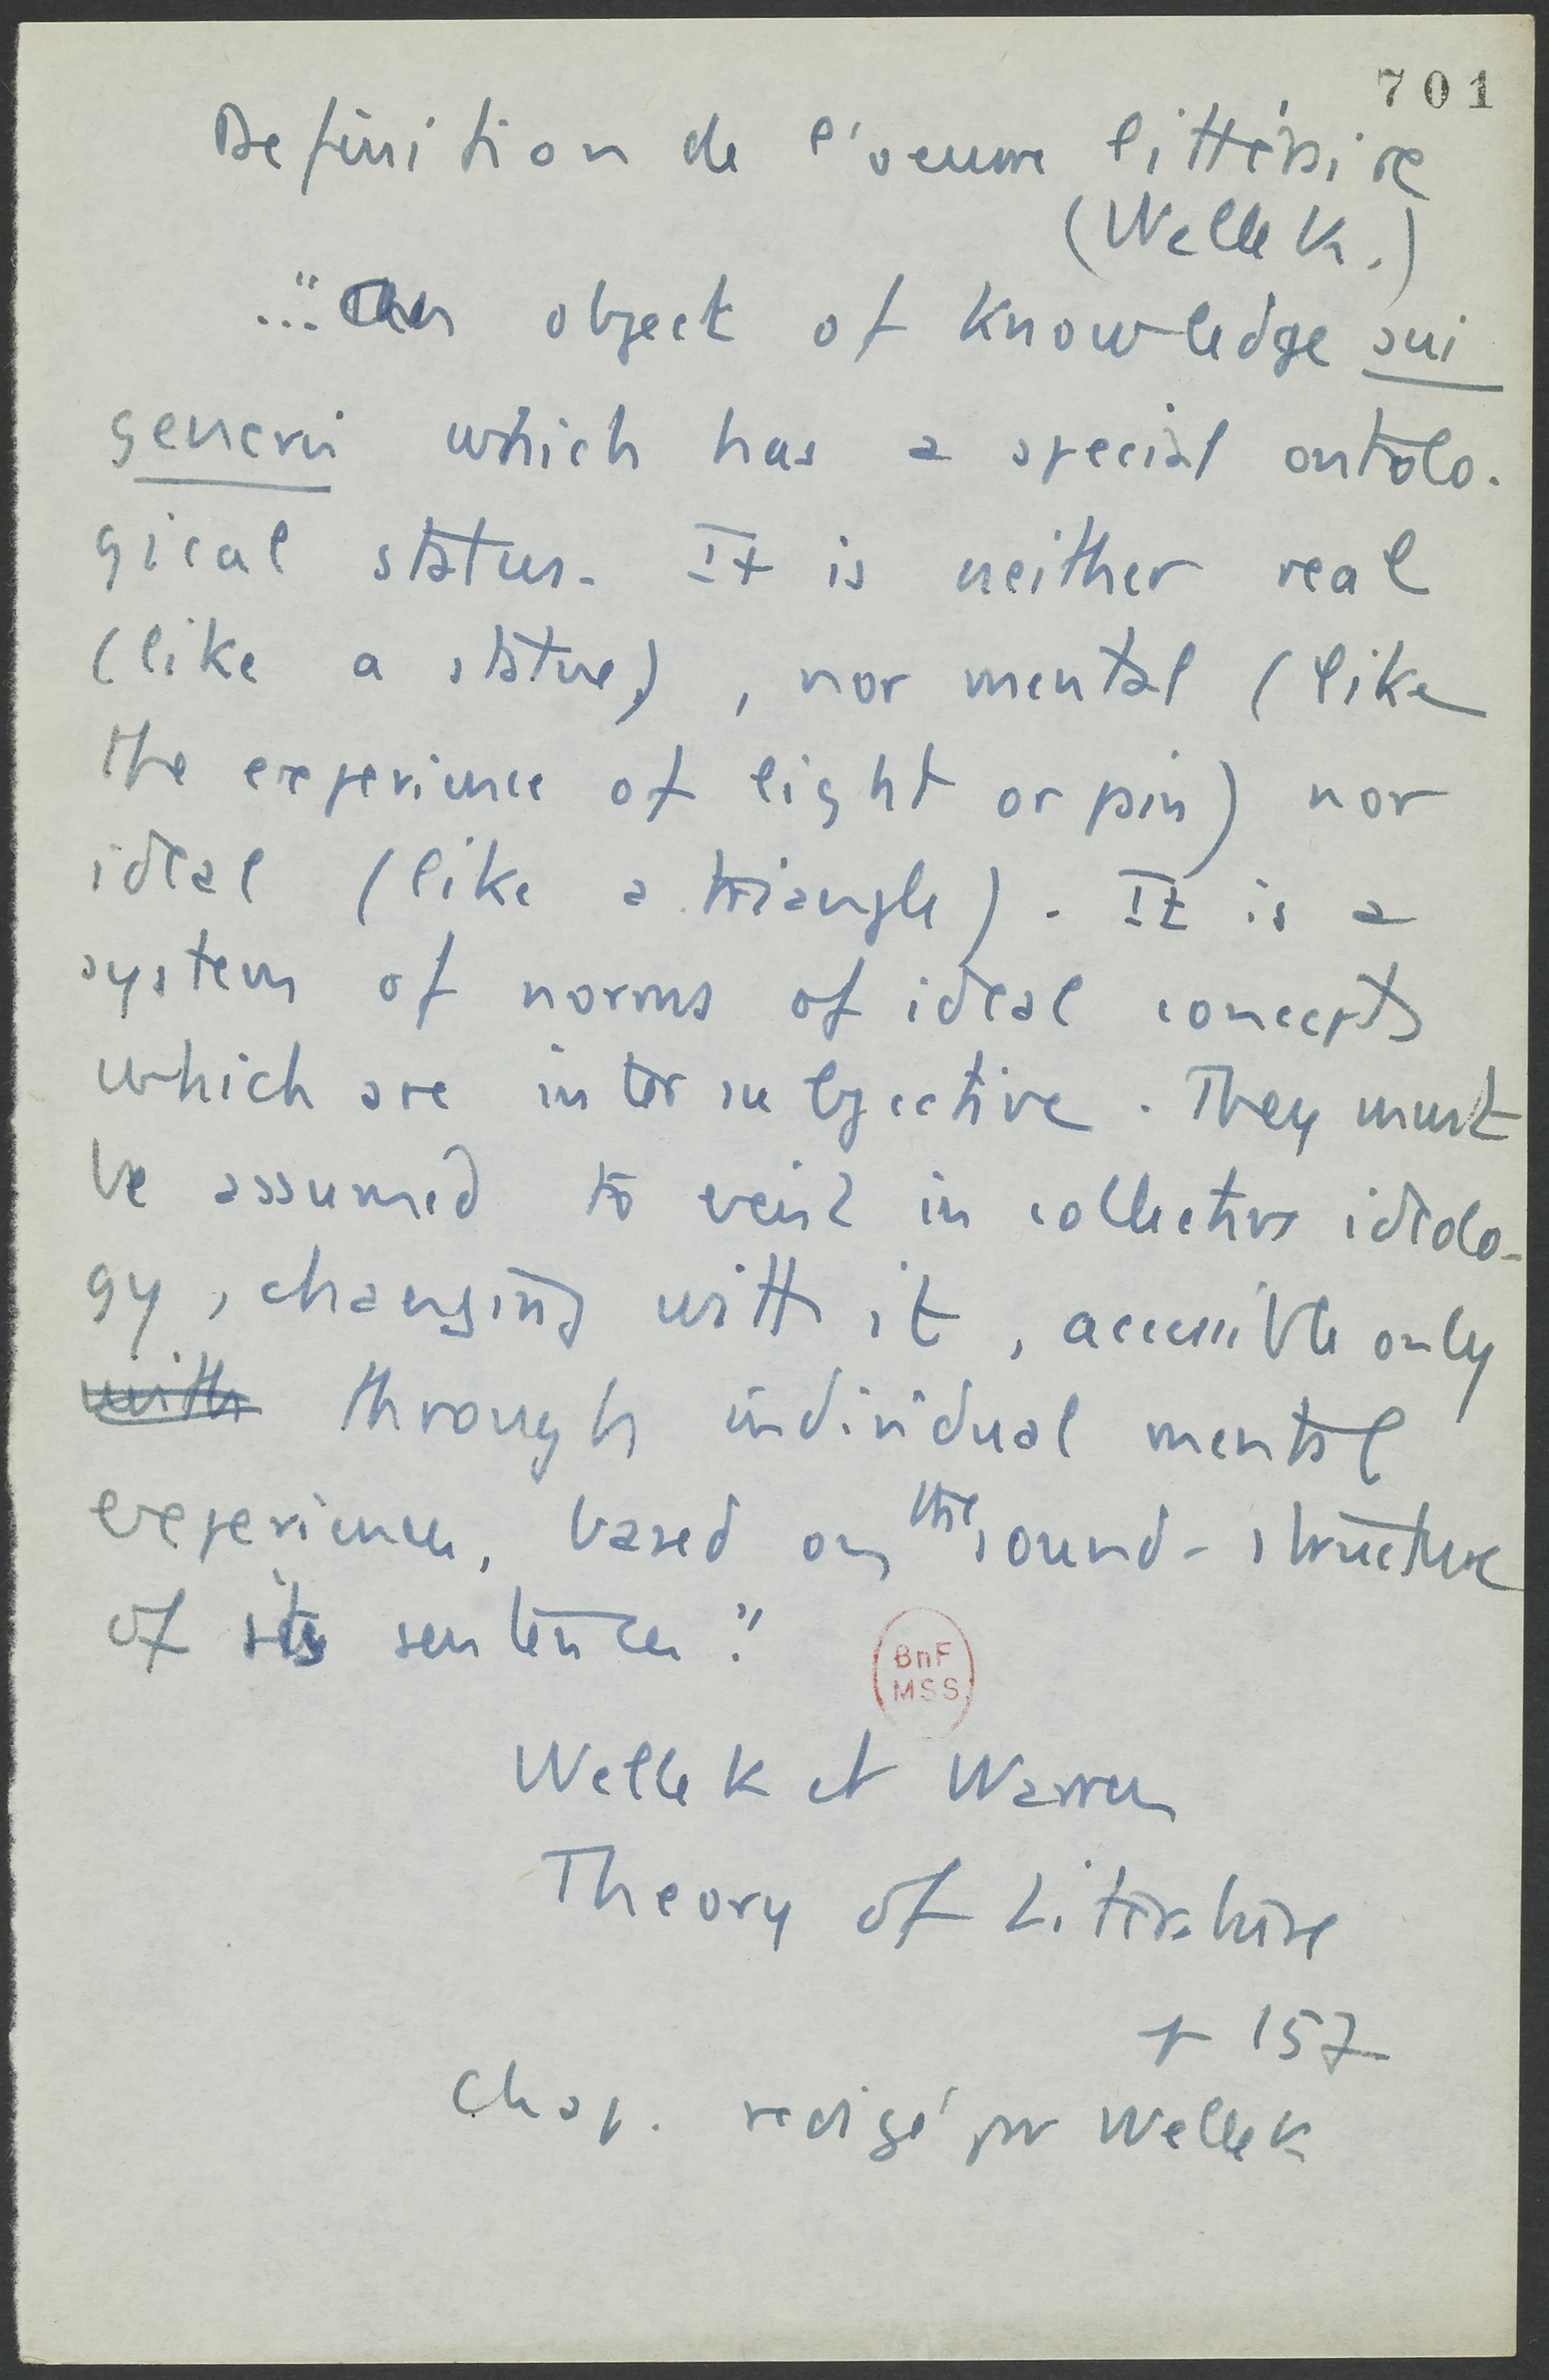 701
Definition de l'oeuvre littéraire
(Wellek.)
..." an object of knowledge sui
generis which has a special ontolo-
gical status. It is neither real
(like a statue), nor mental (like
the experience of light or pain) nor
ideal (like a triangle). It is a
system of norms of ideal concepts
which are intersubjective. They must
be assumed to exist in collective ideolo-
gy, changing with it, accessible only
with through individual mental
experiences, based on the sound-structure
of its sentences."
BnF
MSS
Wellek et Warren
Theory of Literature
p 157
Chap. redigé par Wellek